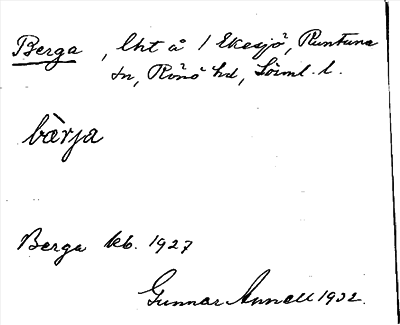 Berga, lht å 1 Ekesjö, Runtuna
sn, Rönö hd, Söiml. l.
bàrja
Berga kb. 1927
Gunnar Annell 1932.